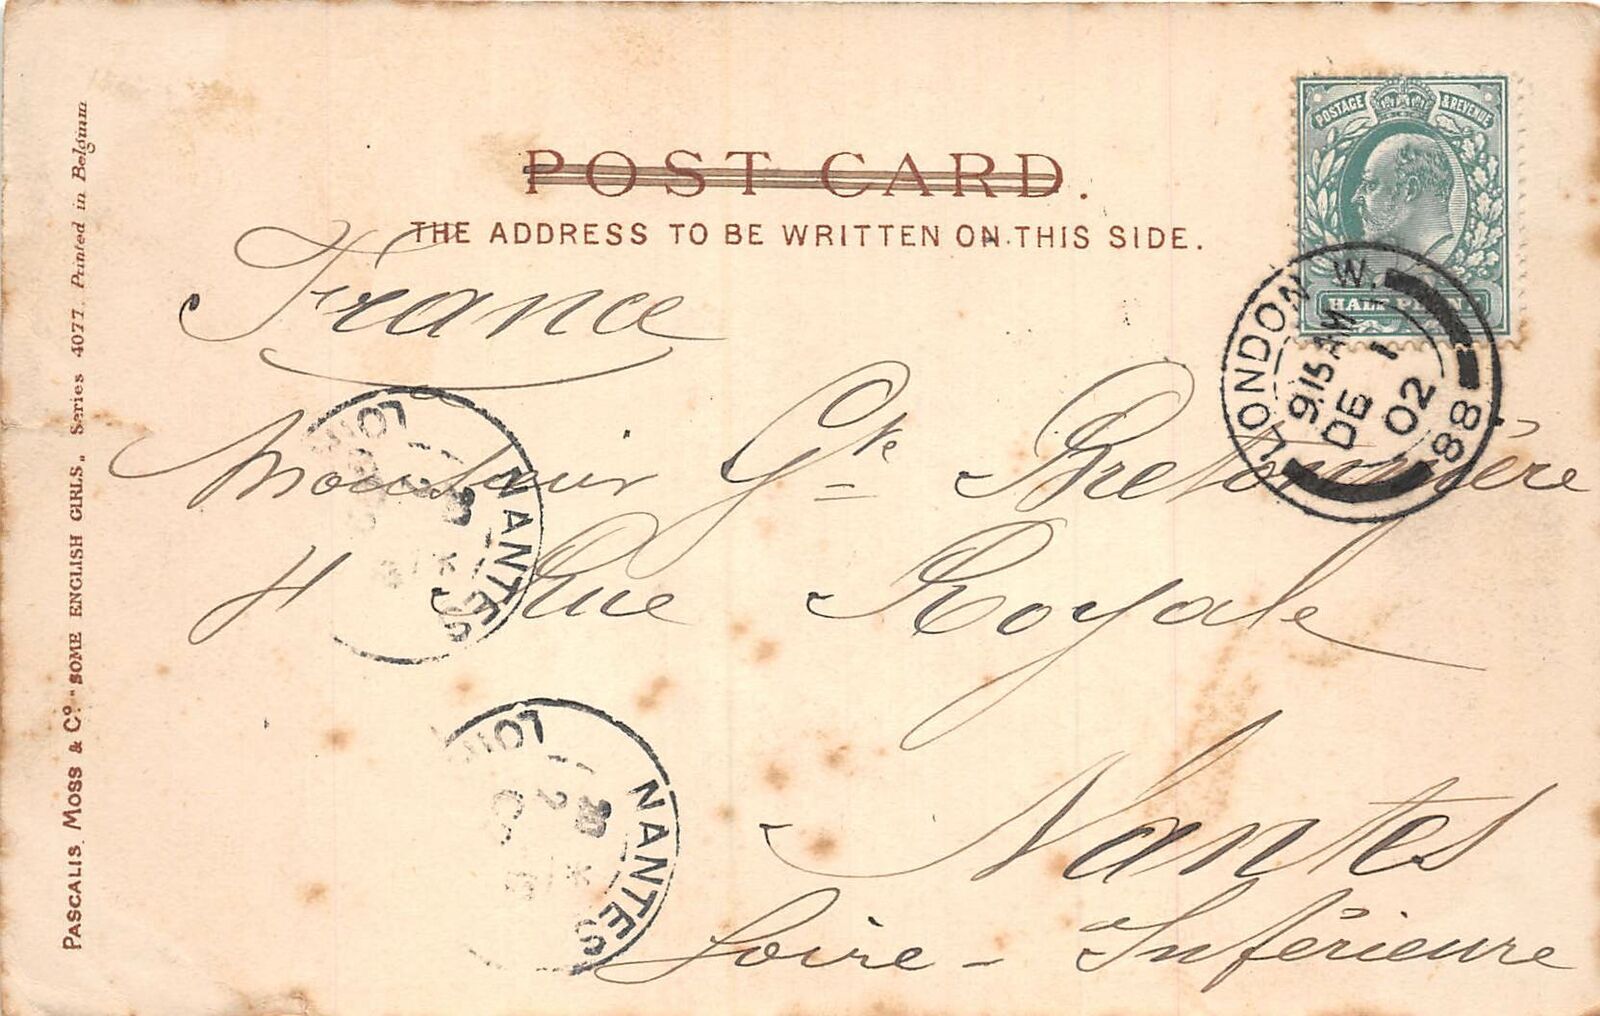 POST CARD.
THE ADDRESS TO BE WRITTEN ON THIS SIDE.
POSTAGE & REVENUE
HALF PENNY
LONDON W.
9.15 AM
DE 1
02
88
France
Monsieur Gte Bretonnière
4 Rue Royale
Nantes
Loire - Inférieure
NANTES
NANTES
PASCALIS, MOSS & Co. "SOME ENGLISH GIRLS" Series 4077. Printed in Belgium